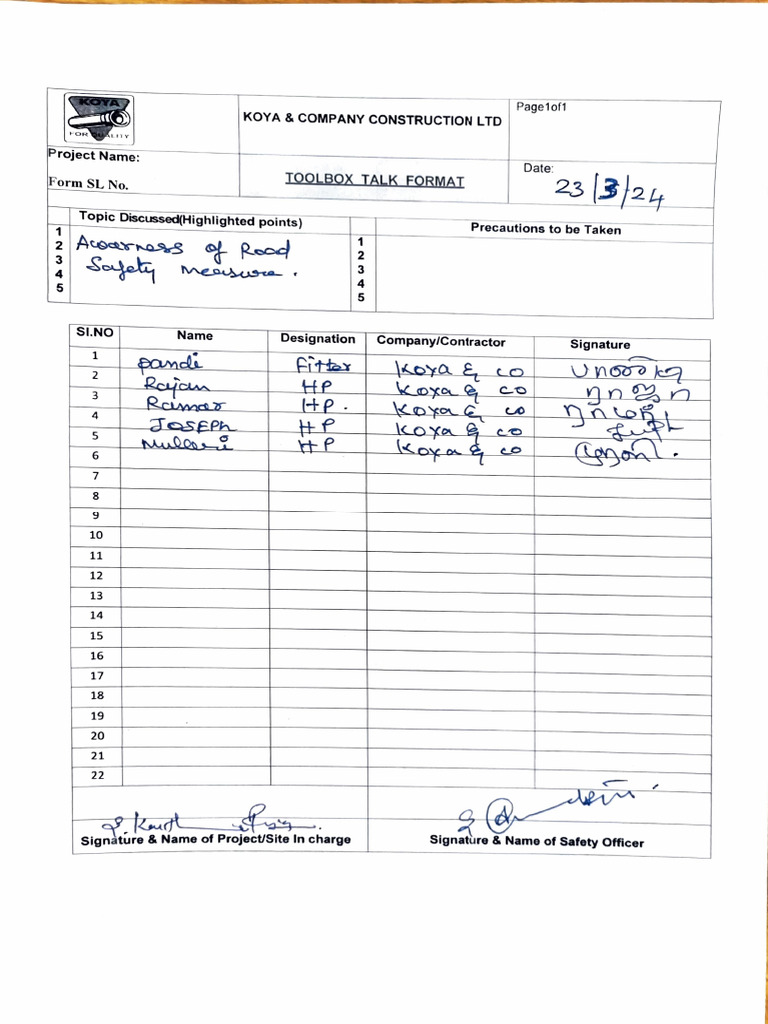 KOYA
FOR QUALITY
KOYA & COMPANY CONSTRUCTION LTD
Page1of1
Project Name:
Form SL No.
TOOLBOX TALK FORMAT
Date:
23/3/24
Topic Discussed(Highlighted points)
Precautions to be Taken
1
2 Awarness of Road
3 Safety measure.
4
5
1
2
3
4
5
SI.NO Name Designation Company/Contractor Signature
1 pandi Fitter Koya & co
2 Rajan HP Koya & co ராஜா
3 Ramar HP. Koya & co ராமர்
4 JOSEPh HP Koya & co
5 HP Koya & co
6
7
8
9
10
11
12
13
14
15
16
17
18
19
20
21
22
Signature & Name of Project/Site In charge
Signature & Name of Safety Officer